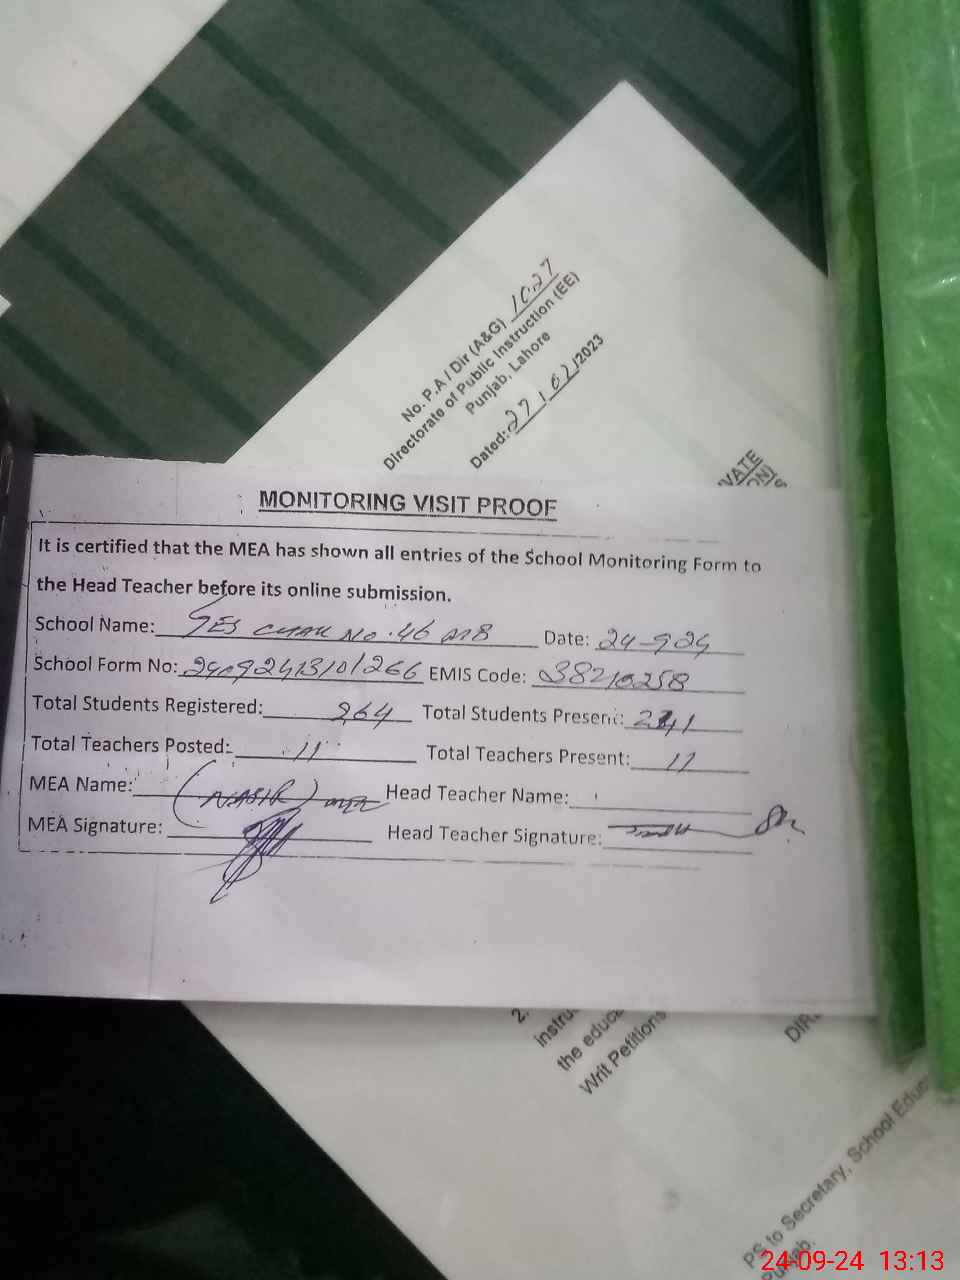 No. P.A / Dir (A&G) 1027
Directorate of Public Instruction (EE)
Punjab, Lahore
Dated: 27/02/2023
VATE
ON)
MONITORING VISIT PROOF
It is certified that the MEA has shown all entries of the School Monitoring Form to
the Head Teacher before its online submission.
School Name: GES CHAK NO. 46 Date: 24-9-24
School Form No: EMIS Code: 38210258
Total Students Registered: 264 Total Students Present: 241
Total Teachers Posted: 11 Total Teachers Present: 11
MEA Name: (NASIR) Head Teacher Name:
MEA Signature: Head Teacher Signature:
2.
instru
the educa
Writ Petitions
DIR
PS to Secretary, School Educ
Punjab.
24-09-24 13:13